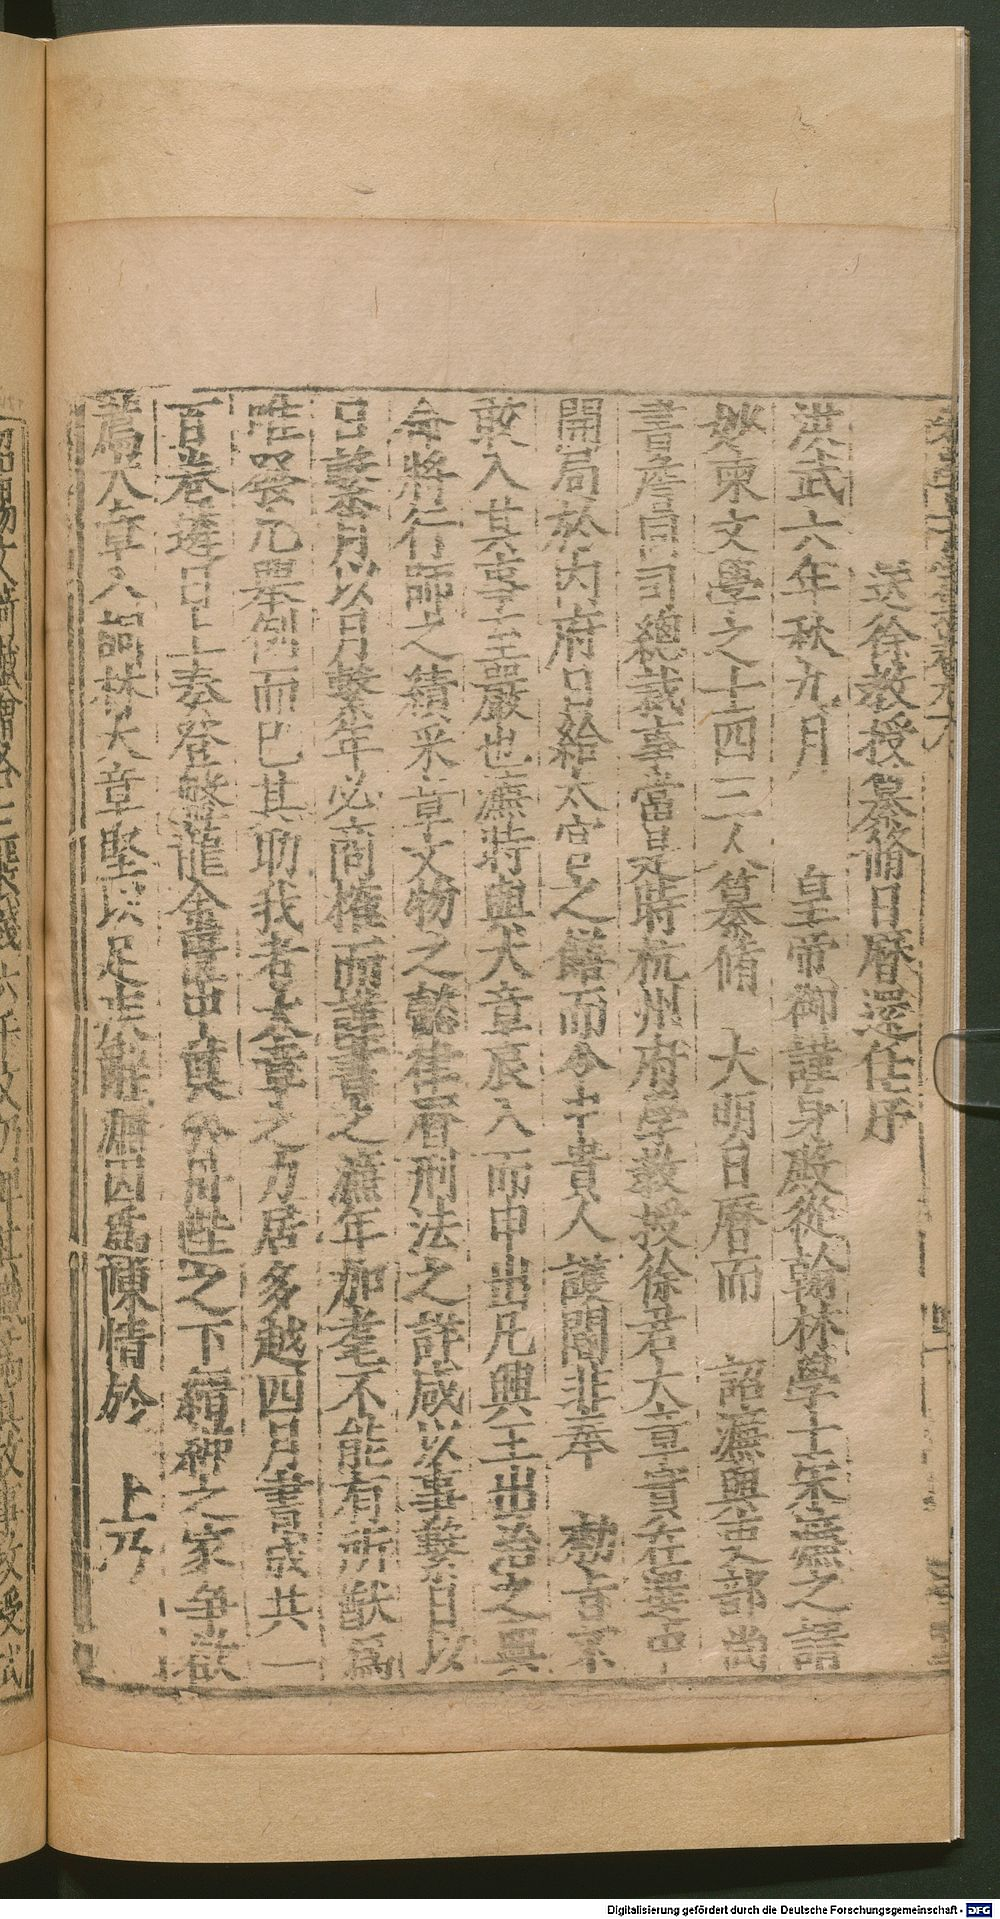 送徐教授纂脩日曆還任序
洪武六年秋九月 皇帝御謹身殿從翰林學士宋濂之請
妙柬文學之士四三人纂脩 大明日曆而 詔濂與吏部尚
書詹同司總裁事當是時杭州府學教授徐君大章實在選中
開局於內府日給太官之饍而令中貴人護閽非奉 勑旨不
敢入其事至嚴也濂時與大章辰入而申出凡興王出治之典
命將行師之績采章文物之懿律曆刑法之詳咸以事繫日以
日繫月以月繫年必商榷而謹書之濂年加耄不能有所猷為
唯發凡舉例而已其助我者大章之力居多越四月書成共一
百卷遴日上奏登 龍金匱 丹陛之下縉紳之家爭欲
薦大章入詞林大章堅以足疾辭濂因為陳情於 上乃
Digitalisierung gefördert durch die Deutsche Forschungsgemeinschaft - DFG